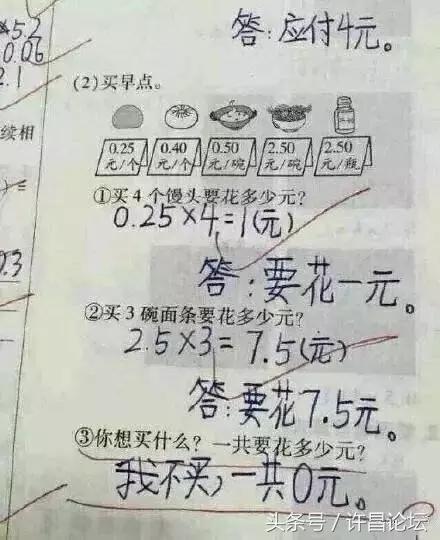 ×5.2
0.06
2.1
答:应付4元。
(2)买早点。
续相
0.25 元/个
0.40 元/个
0.50 元/碗
2.50 元/碗
2.50 元/瓶
①买4个馒头要花多少元?
0.25×4=1(元)
0.3
答:要花一元。
②买3碗面条要花多少元?
2.5×3=7.5(元)
答:要花7.5元。
③你想买什么?一共要花多少元?
我不买,一共0元。
头条号/许昌论坛